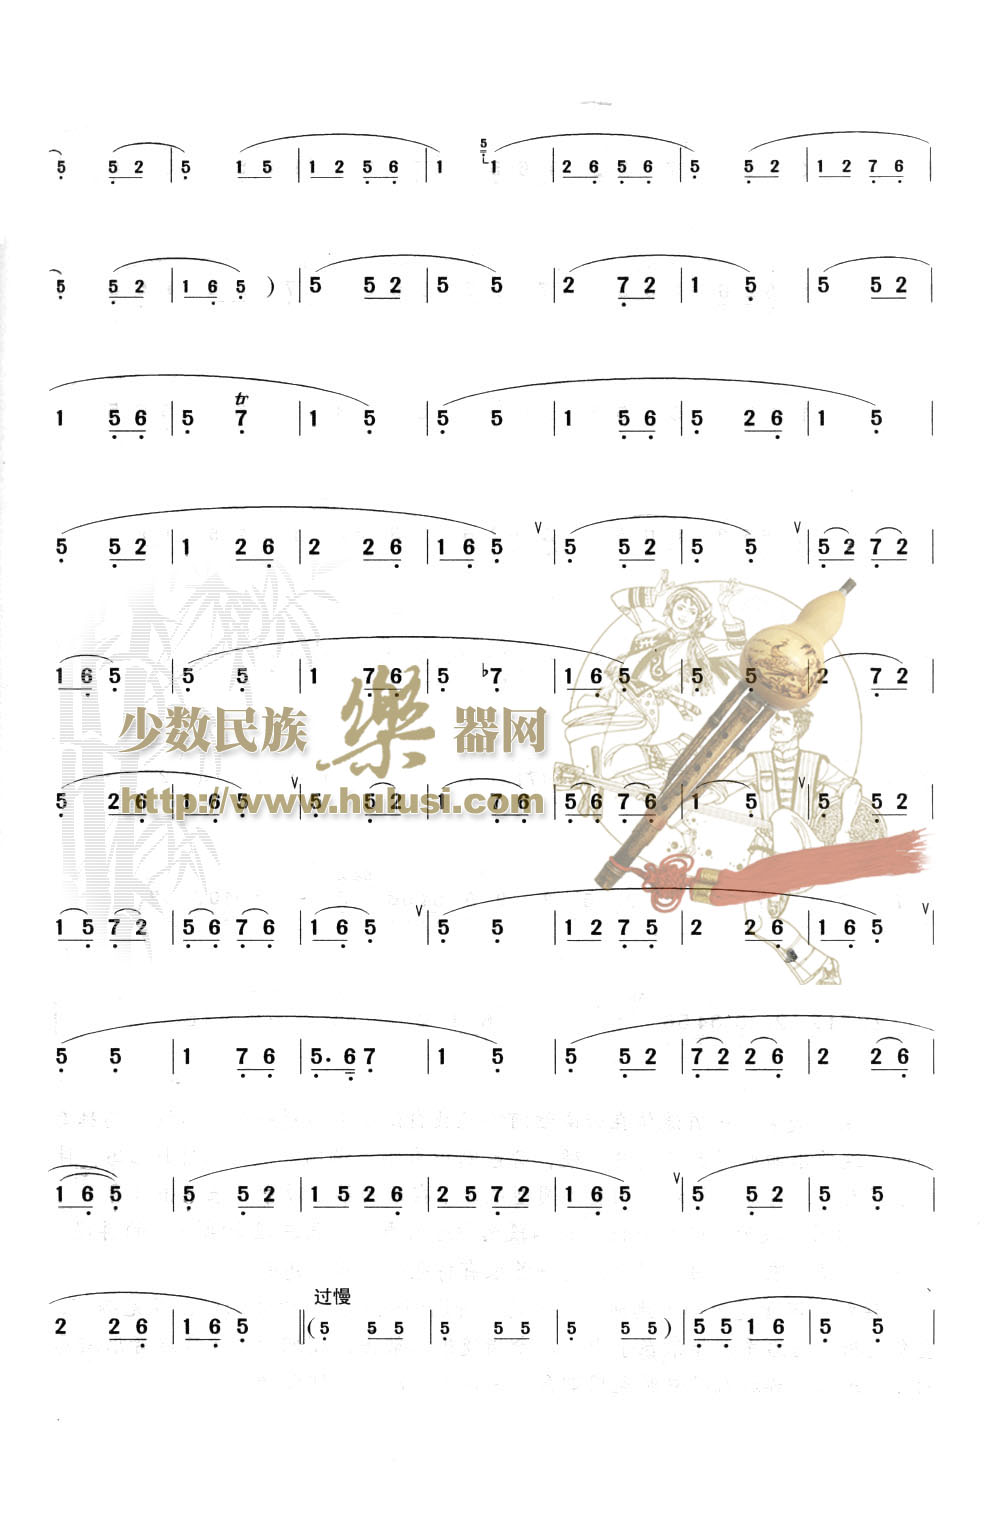 5 5 2 | 5 1 5 | 1 2 5 6 | 1 5 1 | 2 6 5 6 | 5 5 2 | 1 2 7 6 |
5 5 2 | 1 6 5 ) | 5 5 2 | 5 5 | 2 7 2 | 1 5 | 5 5 2 |
tr
1 5 6 | 5 7 | 1 5 | 5 5 | 1 5 6 | 5 2 6 | 1 5 |
5 5 2 | 1 2 6 | 2 2 6 | 1 6 5 ∨ | 5 5 2 | 5 5 ∨ | 5 2 7 2 |
1 6 5 | 5 5 | 1 7 6 | 5 ♭7 | 1 6 5 | 5 5 | 2 7 2 |
少数民族樂器网
5 2 6 | 1 6 5 ∨ | 5 5 2 | 1 7 6 | 5 6 7 6 | 1 5 ∨ | 5 5 2 |
http://www.hulusi.com
1 5 7 2 | 5 6 7 6 | 1 6 5 ∨ | 5 5 | 1 2 7 5 | 2 2 6 | 1 6 5 ∨ |
5 5 | 1 7 6 | 5· 6 7 | 1 5 | 5 5 2 | 7 2 2 6 | 2 2 6 |
1 6 5 | 5 5 2 | 1 5 2 6 | 2 5 7 2 | 1 6 5 ∨ | 5 5 2 | 5 5 |
过慢
2 2 6 | 1 6 5 ‖ ( 5 5 5 | 5 5 5 | 5 5 5 ) | 5 5 1 6 | 5 5 |